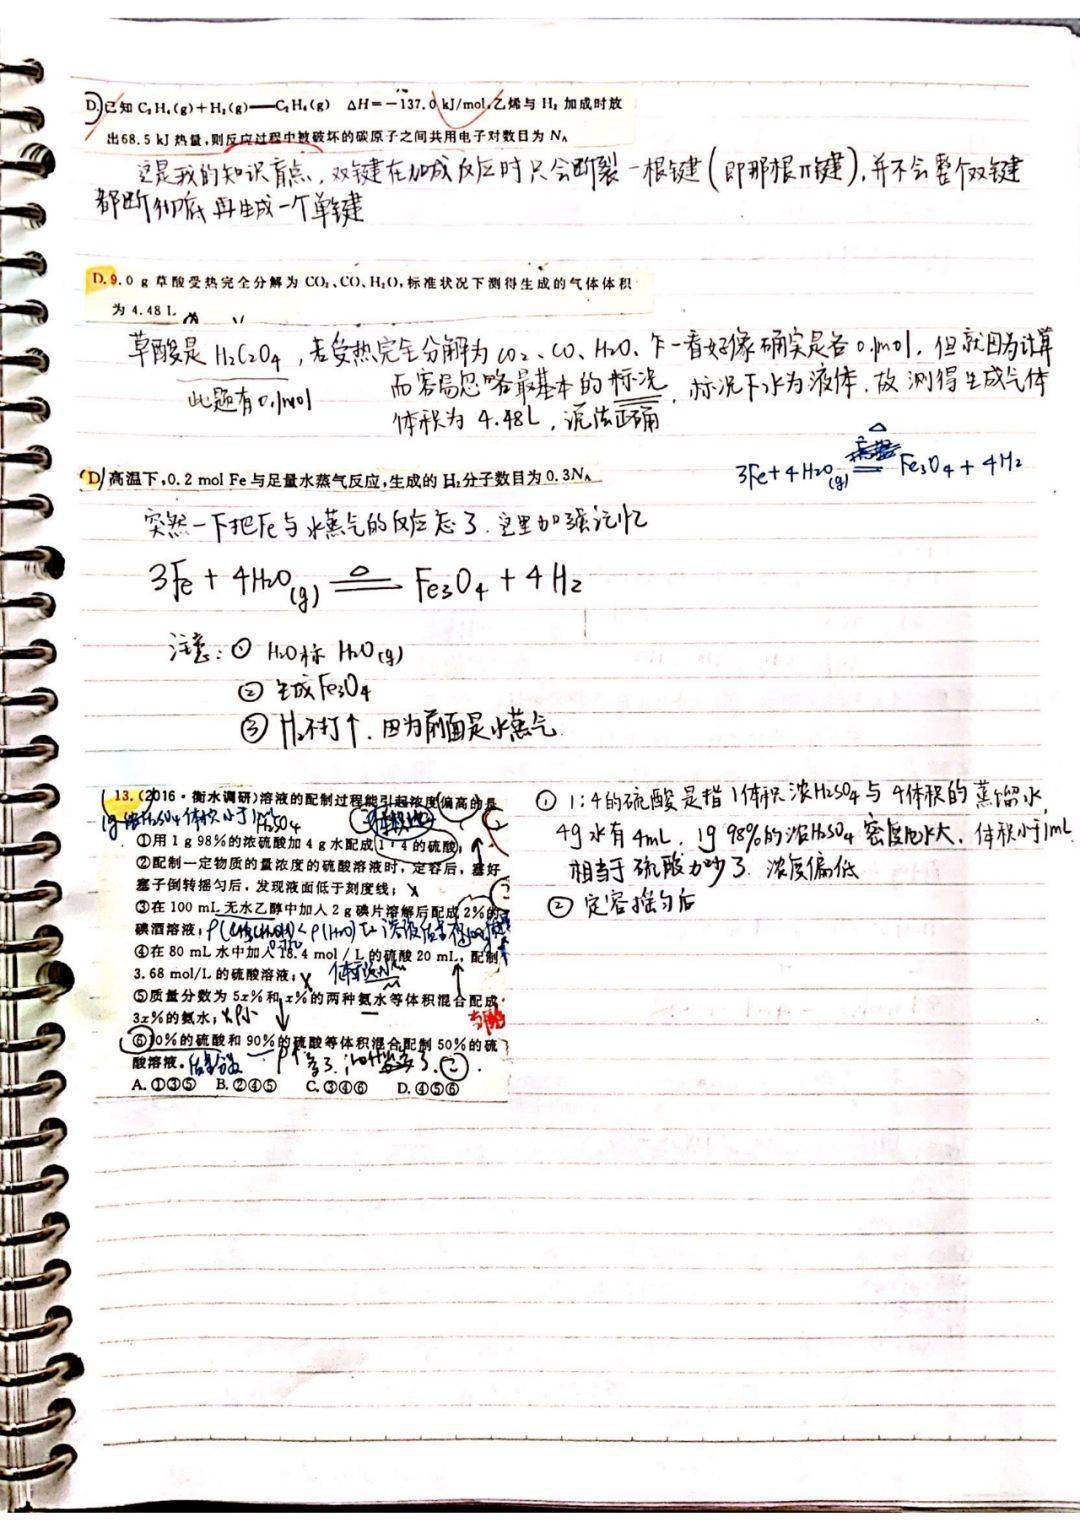 D.已知 C₂H₄(g)+H₂(g)══C₂H₆(g) ΔH=-137.0 kJ/mol,乙烯与 H₂ 加成时放
出68.5 kJ 热量,则反应过程中被破坏的碳原子之间共用电子对数目为 Nᴀ
这是我的知识盲点,双键在加成反应时只会断裂一根键(即那根π键),并不会整个双键
都断彻底再生成一个单键
D.9.0 g 草酸受热完全分解为 CO₂、CO、H₂O,标准状况下测得生成的气体体积
为 4.48 L
草酸是 H₂C₂O₄,若受热完全分解为 CO₂、CO、H₂O、乍一看好像确实是各0.1mol,但就因为计算
此题有0.1mol
而容易忽略最基本的标况,标况下水为液体,故测得生成气体
体积为 4.48L,说法正确
D 高温下,0.2 mol Fe 与足量水蒸气反应,生成的 H₂分子数目为 0.3Nᴀ
3Fe+4H₂O(g) ══ Fe₃O₄+4H₂
△
突然一下把Fe与水蒸气的反应忘了.这里加强记忆
3Fe + 4H₂O(g) ══ Fe₃O₄ + 4H₂
△
注意:① H₂O标 H₂O(g)
② 生成Fe₃O₄
③ H₂不打↑.因为前面是水蒸气.
13.(2016·衡水调研)溶液的配制过程能引起浓度偏高的是
1g浓H₂SO₄体积小于1mL
H₂SO₄
体积比
①用 1 g 98%的浓硫酸加 4 g 水配成 1∶4 的硫酸;
②配制一定物质的量浓度的硫酸溶液时,定容后,塞好
塞子倒转摇匀后,发现液面低于刻度线;
③在 100 mL 无水乙醇中加入 2 g 碘片溶解后配成 2%的
碘酒溶液;
ρ(CH₃CH₂OH)<ρ(H₂O)
④在 80 mL 水中加入 18.4 mol / L 的硫酸 20 mL,配制
3.68 mol/L 的硫酸溶液;
⑤质量分数为 5x%和 x%的两种氨水等体积混合配成
3x%的氨水;
⑥10%的硫酸和 90%的硫酸等体积混合配制 50%的硫
酸溶液。
A. ①③⑤ B. ②④⑤ C. ③④⑥ D. ④⑤⑥
① 1:4的硫酸是指1体积浓H₂SO₄与4体积的蒸馏水,
4g水有4mL,1g 98%的浓H₂SO₄密度比水大,体积小于1mL
相当于硫酸加少了.浓度偏低
② 定容摇匀后